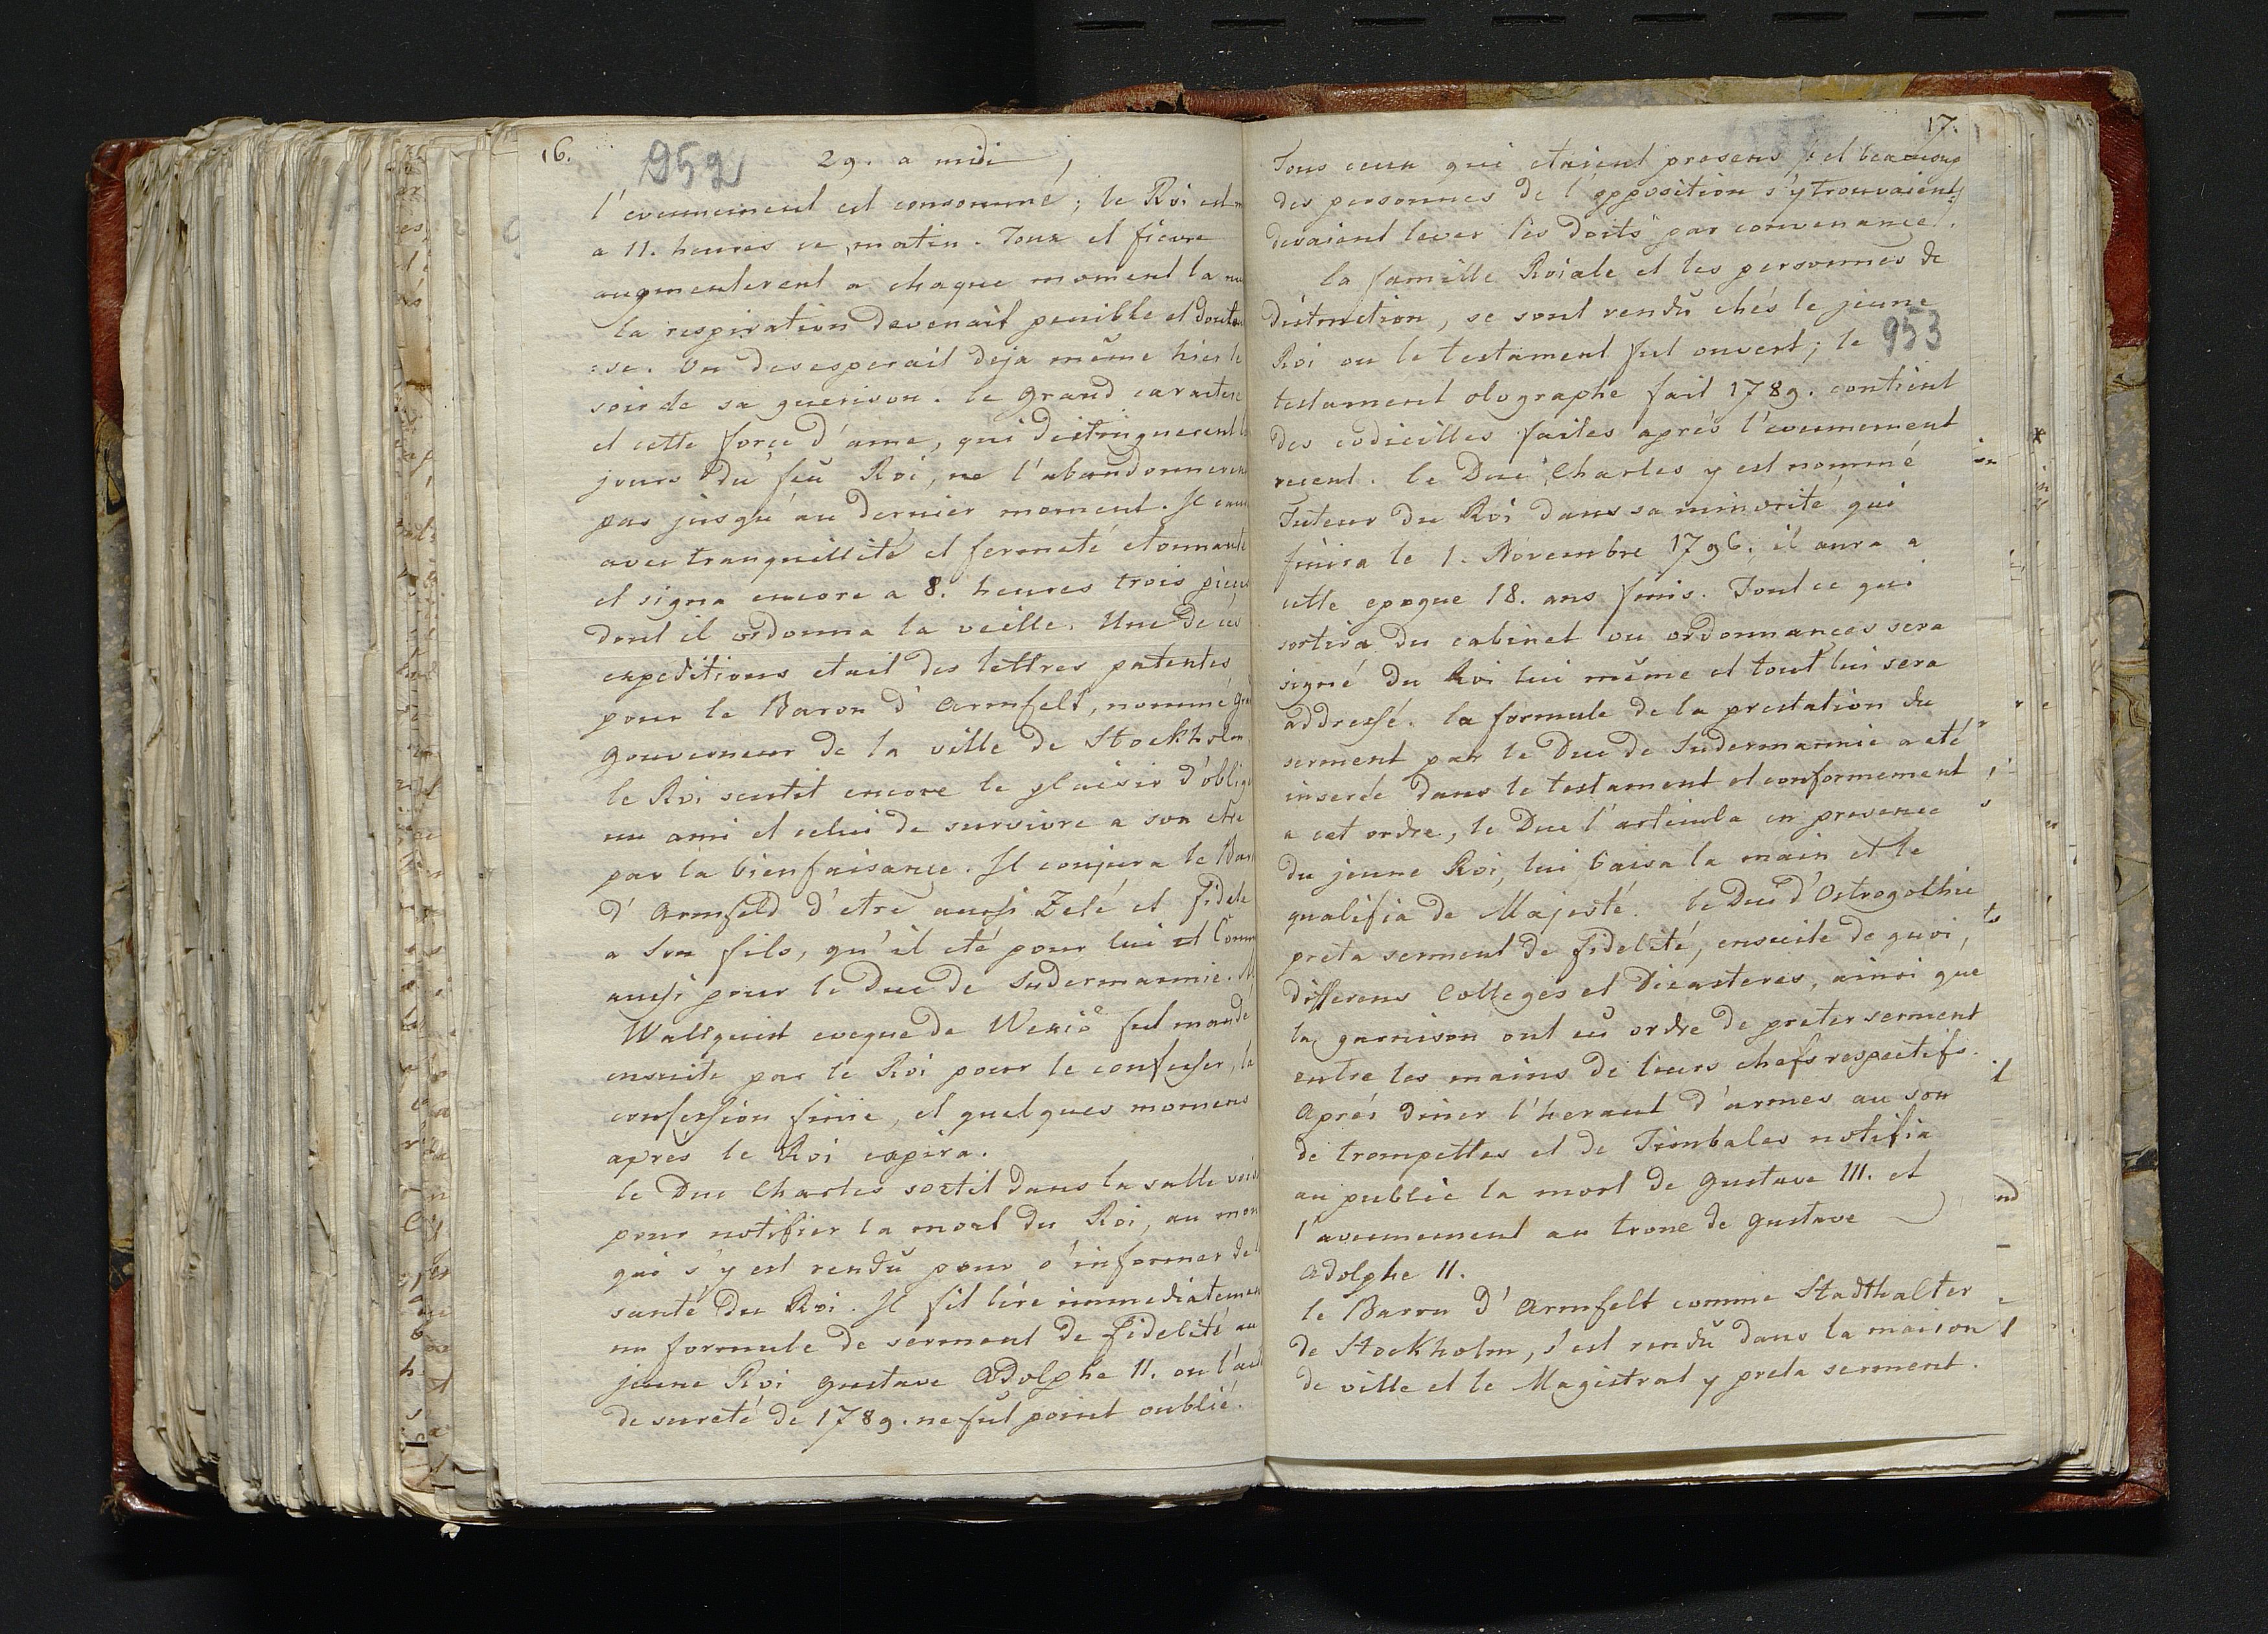 16.
952
29. a midi
l'evennement est consommé; le Roi est
a 11. heures ce matin. Toux et fievre
augmenterent a chaque moment la
la respiration devenait penible et douteu
=se. On desesperait deja même hier le
soir de sa guerison. le grand caractere
et cette force d'ame, qui distinguerent
jours du feû Roi, ne l'abandonnerent
pas jusqu'au dernier moment. Il
avec tranquillité et fermeté etonnante
et signa encore a 8. heures trois
dont il ordonna la veille. Une de ces
expeditions etait des lettres patentes
pour le Baron d'Armfelt, nommé
gouverneur de la ville de Stockholm
le Roi sentit encore le plaisir d'oblige
un ami et celui de survivre a son etre
par la bienfaisance. Il conjura le Bar
d'Armfeld d'etre aussi Zelé et fidele
a son fils, qu'il eté pour lui et Comm
aussi pour le Duc de Sudermannie.
Wallquist eveque de Wexiö fut mandé
ensuite par le Roi pour le confesser, la
confession finie, et quelques momens
après le Roi expira.
le Duc Charles sortit dans la salle vois
pour notifier la mort du Roi, au mon
qui s'y est rendû pour s'informer de
santé du Roi. Il fit lire immediatement
un formule de serment de fidelité au
jeune Roi gustave Adolphe II. ou l'act
de sureté de 1789. ne fut point oublié.
17.
Tous ceux qui etaient presens (et beaucoup
des personnes de l'opposition s'y trouvaient)
devaient lever les doits par convenance.
la famille Roiale et les personnes de
distinction, se sont rendû chés le jeune
Roi ou le testament fut ouvert; le
953
testament olographe fait 1789. contient
des codicilles faites après l'evennement
recent. le Duc Charles y est nommé
Tuteur du Roi dans sa minorité qui
finira le 1. Novembre 1796. il aura a
cette epoque 18. ans finis. Tout ce qui
sortira du cabinet ou ordonnances sera
signé du Roi lui même et tout lui sera
addressé. la formule de la prestation du
serment par le Duc de Sudermannie a eté
inserée dans le testament et conformement
a cet ordre, le Duc l'articula en presence
du jeune Roi, lui baisa la main et le
qualifia de Majesté. le Duc d'Ostrogothie
prêta serment de fidelité, ensuite de quoi,
differens Colleges et Dicasteres, ainsi que
la garnison ont eû ordre de preter serment
entre les mains de leurs chefs respectifs.
Aprés diner l'heraut d'armes au son
de trompettes et de Timbales notifia
au public la mort de gustave III. et
l'avennement au trone de gustave
Adolphe II.
le Baron d'Armfelt comme Stadthalter
de Stockholm, s'est rendû dans la maison
de ville et le Magistrat y preta serment.